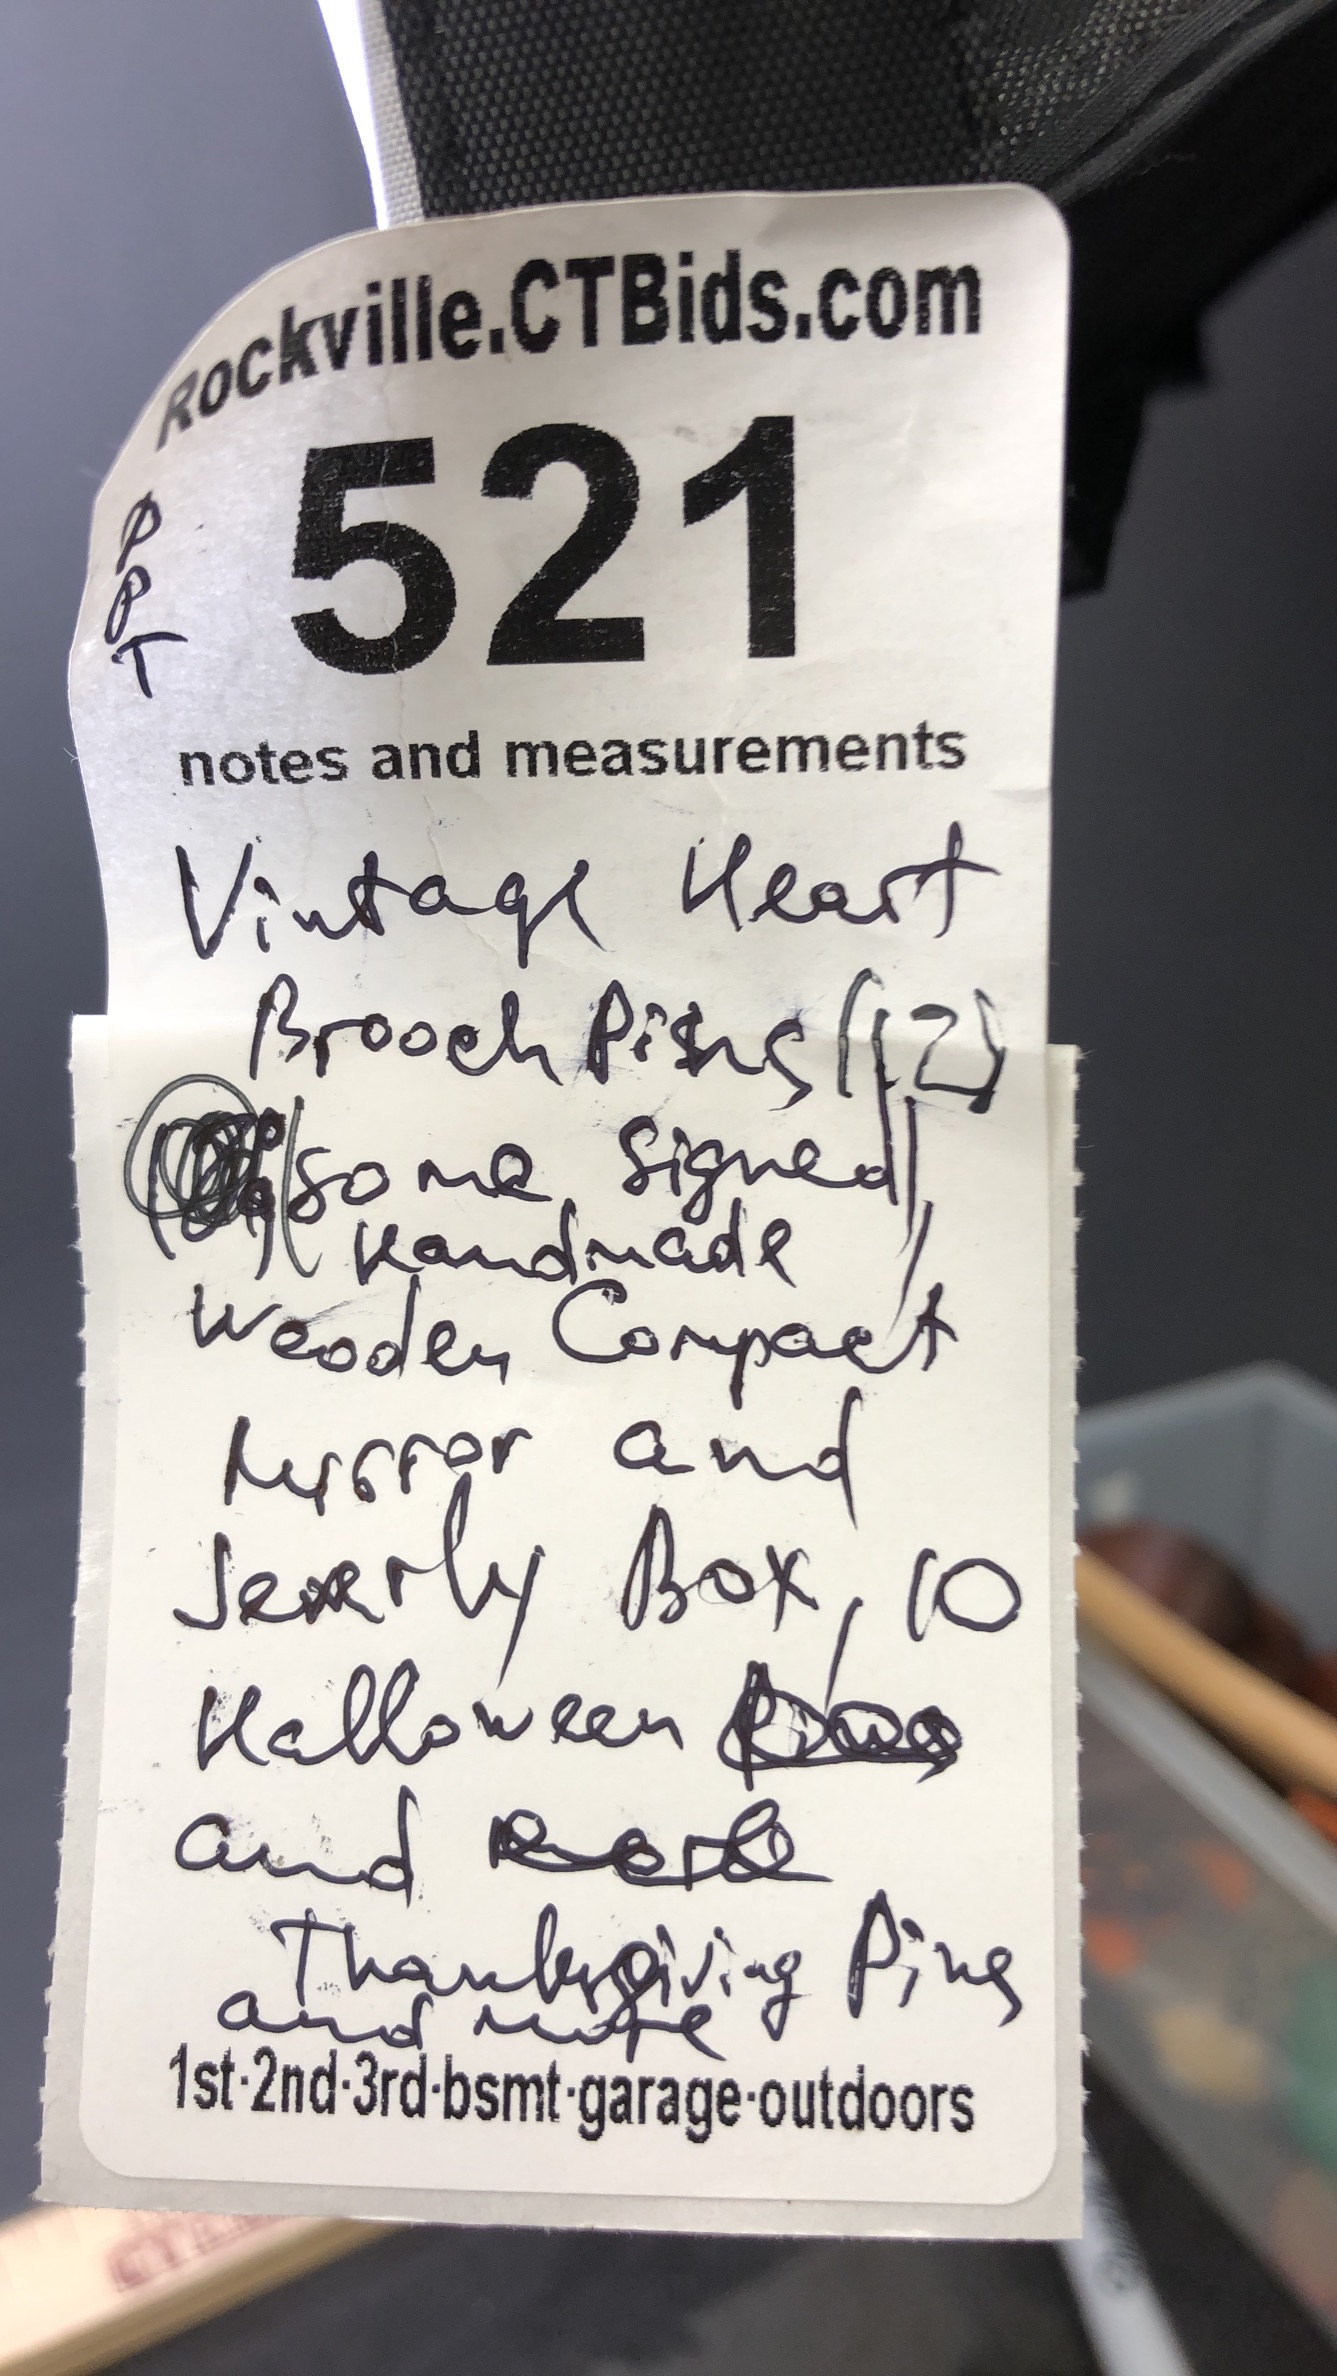 Rockville.CTBids.com
521
P
P
T
notes and measurements
Vintage Heart
Brooch Pins (12)
(some signed),
Handmade
Wooden Compact
Mirror and
Jewerly Box, 10
Halloween
and
Thanksgiving Pins
and more
1st·2nd·3rd·bsmt·garage·outdoors